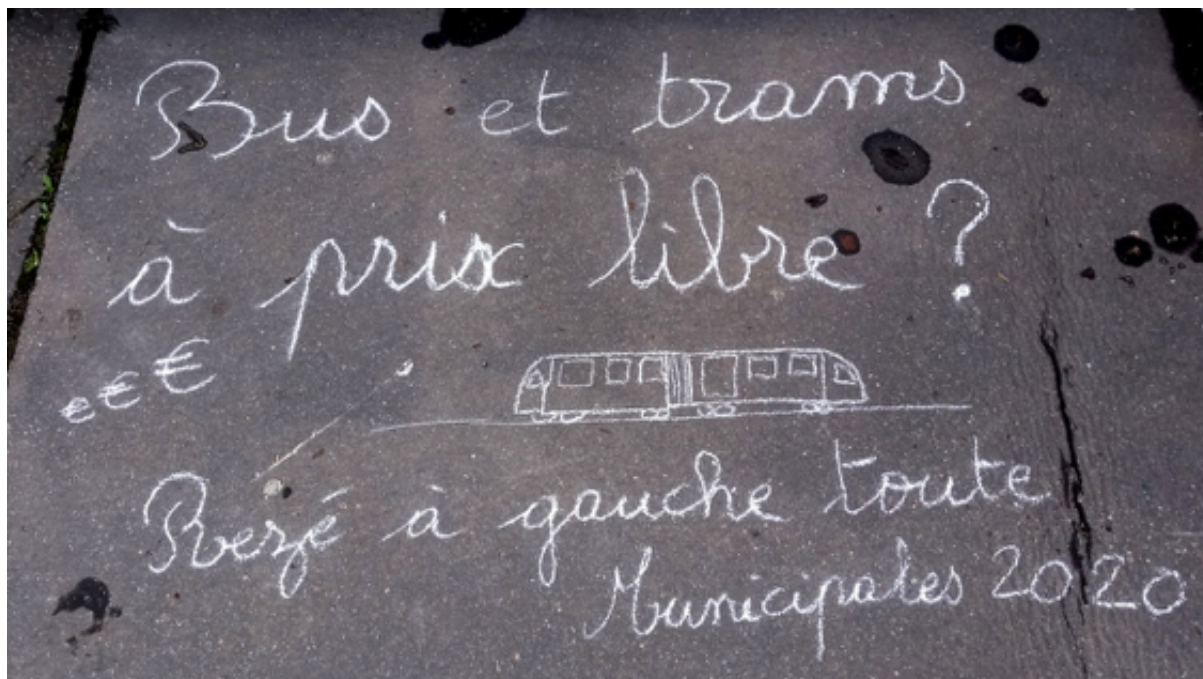 Bus et trams
à prix libre ?
€ € €
Rezé à gauche toute
Municipales 2020